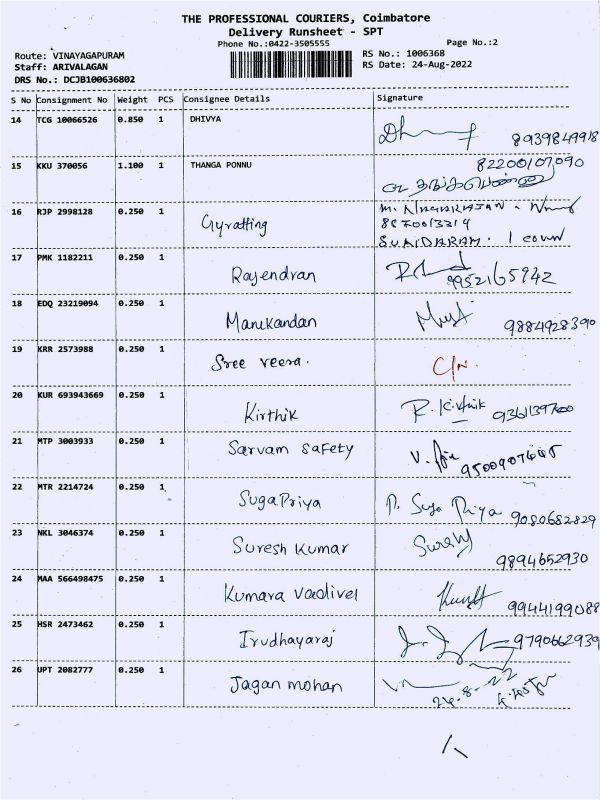 THE PROFESSIONAL COURIERS, Coimbatore
Delivery Runsheet - SPT
Phone No.:0422-3505555
Page No.:2
Route: VINAYAGAPURAM
Staff: ARIVALAGAN
DRS No.: DCJB100636802
RS No.: 1006368
RS Date: 24-Aug-2022
S No Consignment No Weight PCS Consignee Details Signature
14 TCG 10066526 0.850 1 DHIVYA
8939849918
15 KKU 370056 1.100 1 THANGA PONNU 82200107090
16 RJP 2998128 0.250 1 Gyratting
8870013319
SUNDARAM.
17 PMK 1182211 0.250 1 Rajendran 9952165942
18 EDQ 23219094 0.250 1 Manikandan 9884928390
19 KRR 2573988 0.250 1 Sree veera. C/N.
20 KUR 693943669 0.250 1 Kirthik R. Kirthik
21 MTP 3003933 0.250 1 Sarvam Safety
22 MTR 2214724 0.250 1 SugaPriya P. Suga Priya 9080682829
23 NKL 3046374 0.250 1 Suresh Kumar Suresh 9894652930
24 MAA 566498475 0.250 1 Kumara Vadivel 9944199088
25 HSR 2473462 0.250 1 Irudhayaraj 9790662939
26 UPT 2082777 0.250 1 Jagan mohan
24-8-22